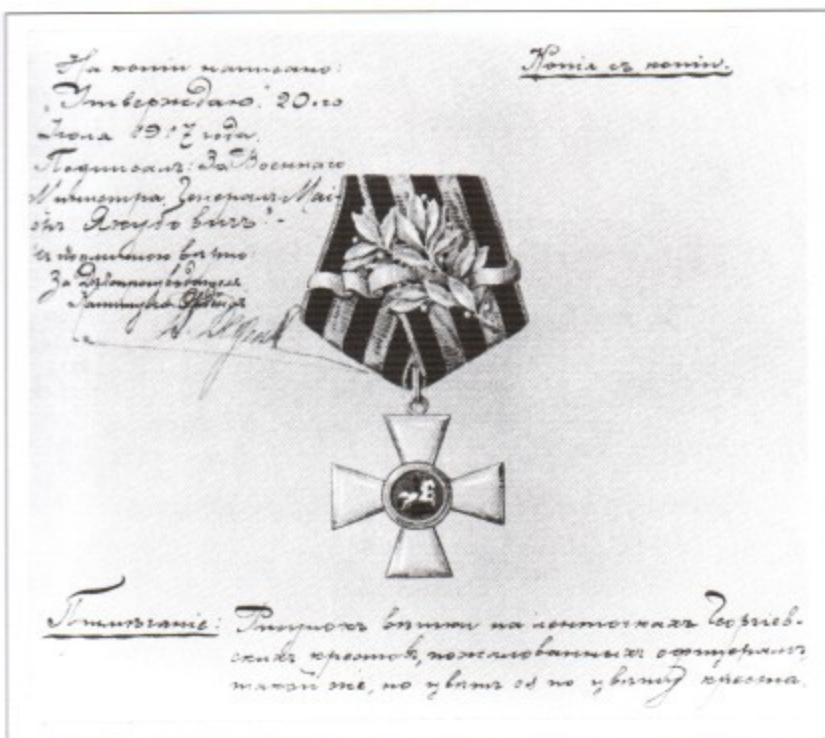 На копіи написано:
„Утверждаю." 20-го
Іюля 1917 года.
Подписалъ: За Военнаго
Министра, Генералъ-Маі-
оръ Якубовичъ".-
съ подлинною вѣрно:
За Дѣлопроизводителя
Капитулъ
Копія съ копіи.
Примѣчаніе: Рисунокъ вѣтки на ленточкахъ Георгіев-
скихъ крестовъ, пожалованныхъ офицерамъ,
такой же, но цвѣтъ ея по цвѣту креста.